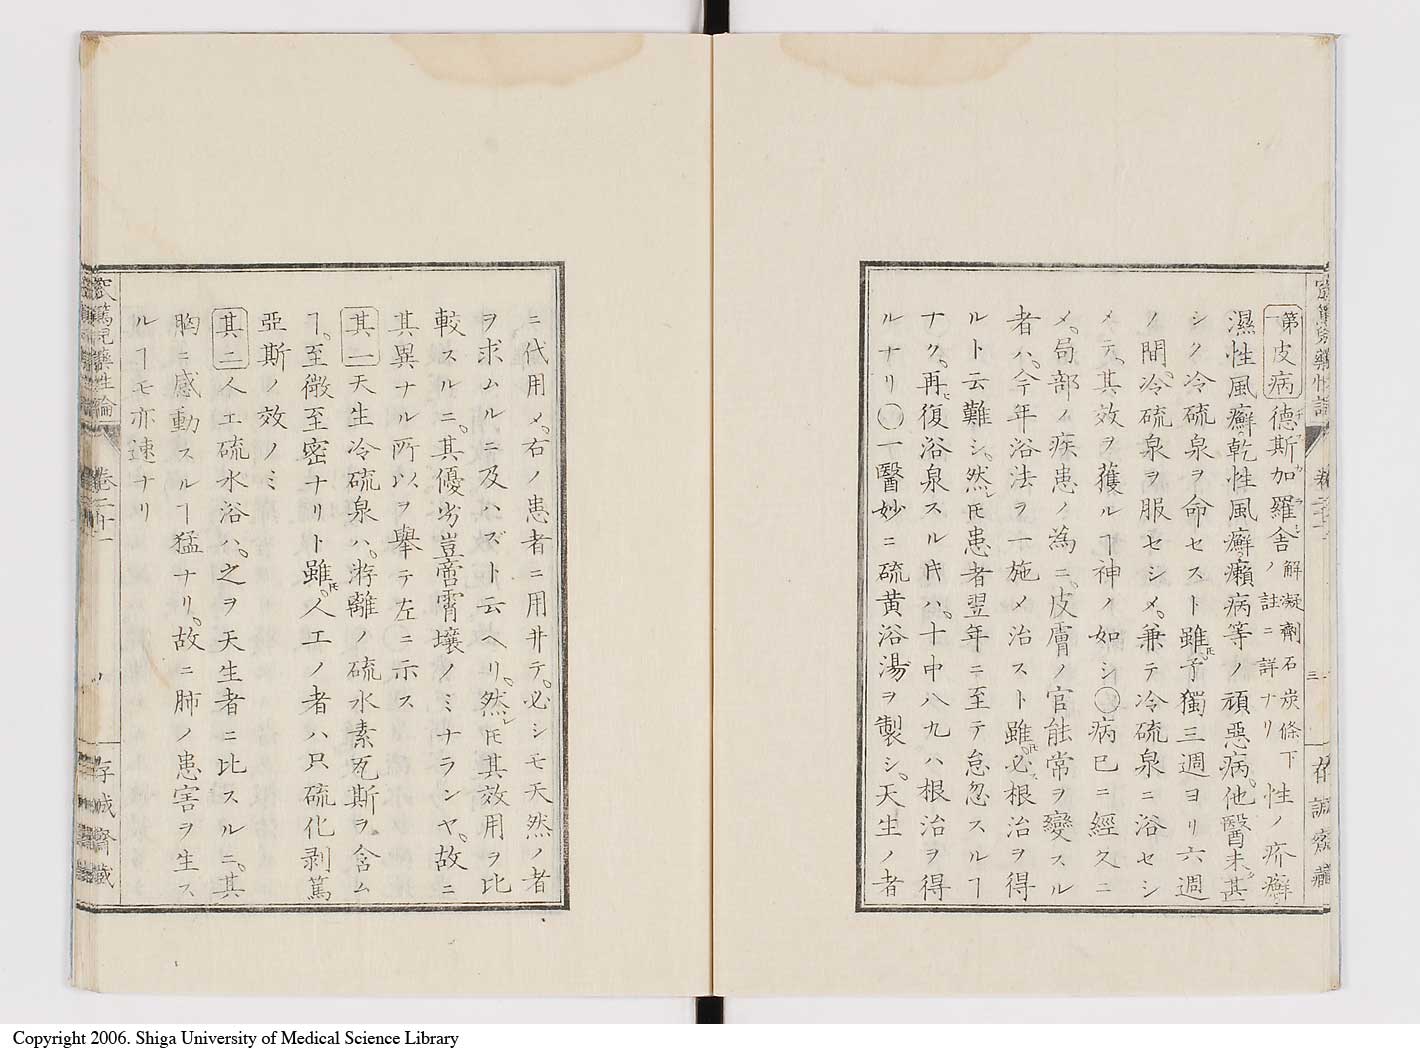 第一皮病德斯加羅舎解凝劑石炭條下ノ註ニ詳ナリ性ノ疥癬
濕性風癬乾性風癬癩病等ノ頑惡病。他醫未甚
シク冷硫泉ヲ命セスト雖𪜈予獨三週ヨリ六週
ノ間。冷硫泉ヲ服セシメ。兼テ冷硫泉ニ浴セシ
メテ。其效ヲ獲ルヿ神ノ如シ◯病已ニ經久ニ
メ。局部ノ疾患ノ為ニ。皮膚ノ官能常ヲ變スル
者ハ。今年浴法ヲ一施メ治スト雖𪜈。必ス根治ヲ得
ルト云難シ。然レ𪜈患者翌年ニ至テ怠忽スルヿ
ナク。再ヒ復浴泉スル𪜈ハ。十中八九ハ根治ヲ得
ルナリ◯一醫妙ニ硫黄浴湯ヲ製シ。天生ノ者
ニ代用メ。右ノ患者ニ用井テ。必シモ天然ノ者
ヲ求ムルニ及ハズト云ヘリ。然レ𪜈其效用ヲ比
較スルニ。其優劣豈啻霄壤ノミナランヤ。故ニ
其異ナル所以ヲ擧テ左ニ示ス
其一天生冷硫泉ハ。游離ノ硫水素瓦斯ヲ含ム
ヿ。至微至密ナリト雖𪜈。人工ノ者ハ只硫化剥篤
亞斯ノ效ノミ
其二人工硫水浴ハ。之ヲ天生者ニ比スルニ。其
胸ニ感動スルヿ猛ナリ。故ニ肺ノ患害ヲ生ス
ルヿモ亦速ナリ
篤兒藥性論
卷二十一
存誠齋藏
Copyright 2006. Shiga University of Medical Science Library